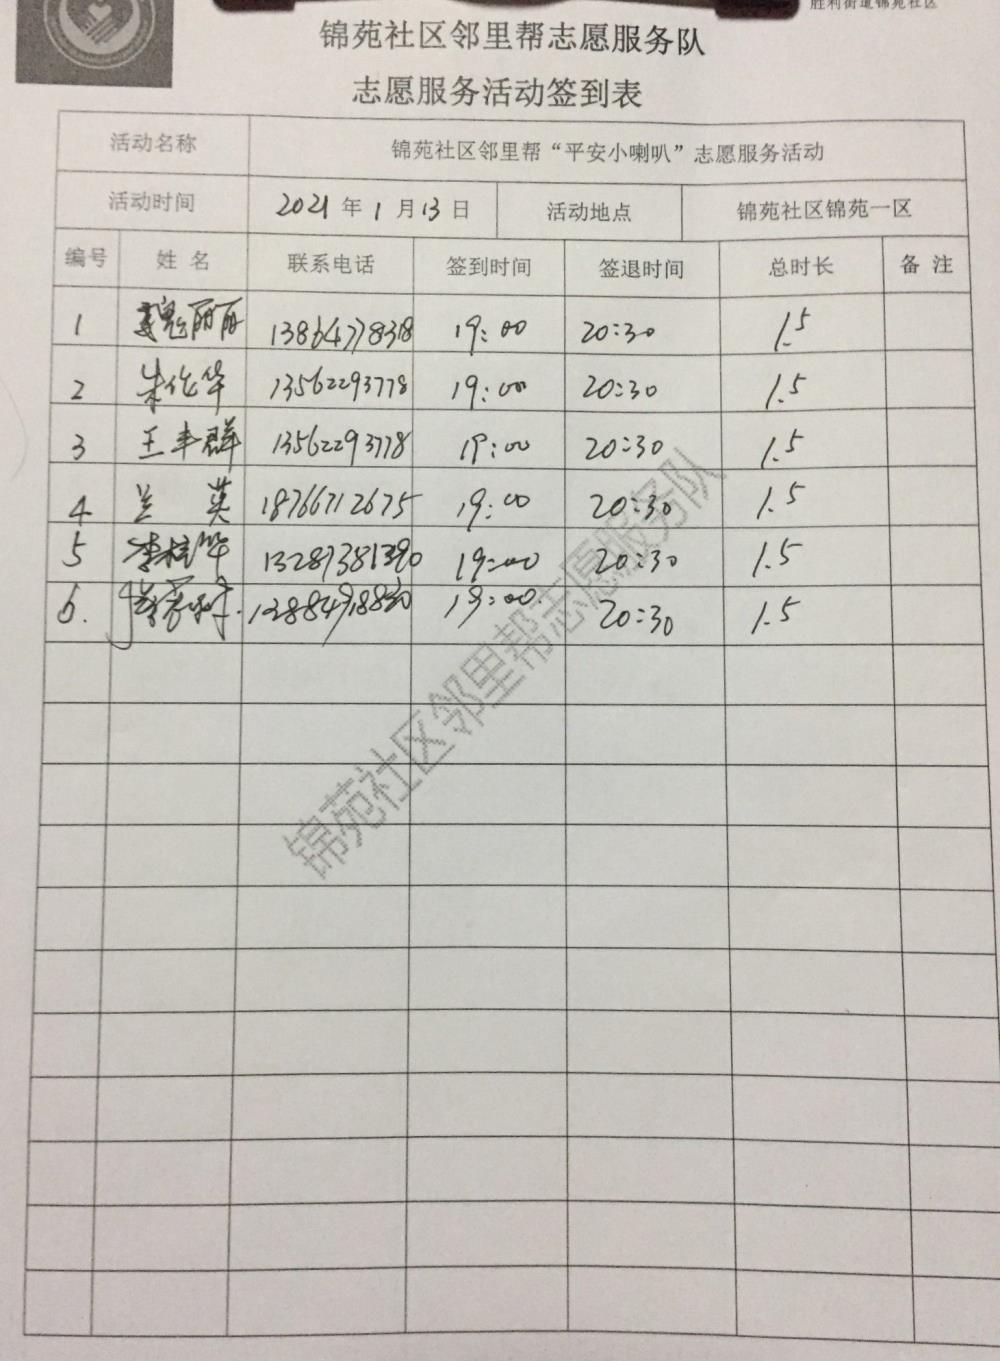 胜利街道锦苑社区
锦苑社区邻里帮志愿服务队
志愿服务活动签到表
活动名称 锦苑社区邻里帮“平安小喇叭”志愿服务活动
活动时间 2021 年 1 月 13 日 活动地点 锦苑社区锦苑一区
编号 姓 名 联系电话 签到时间 签退时间 总时长 备 注
1 魏丽丽 13864778318 19:00 20:30 1.5
2 朱作华 13562293778 19:00 20:30 1.5
3 王丰群 13562293778 19:00 20:30 1.5
4 兰 英 18766712675 19:00 20:30 1.5
5 李桂华 13287381390 19:00 20:30 1.5
6. 19:00 20:30 1.5
锦苑社区邻里帮志愿服务队